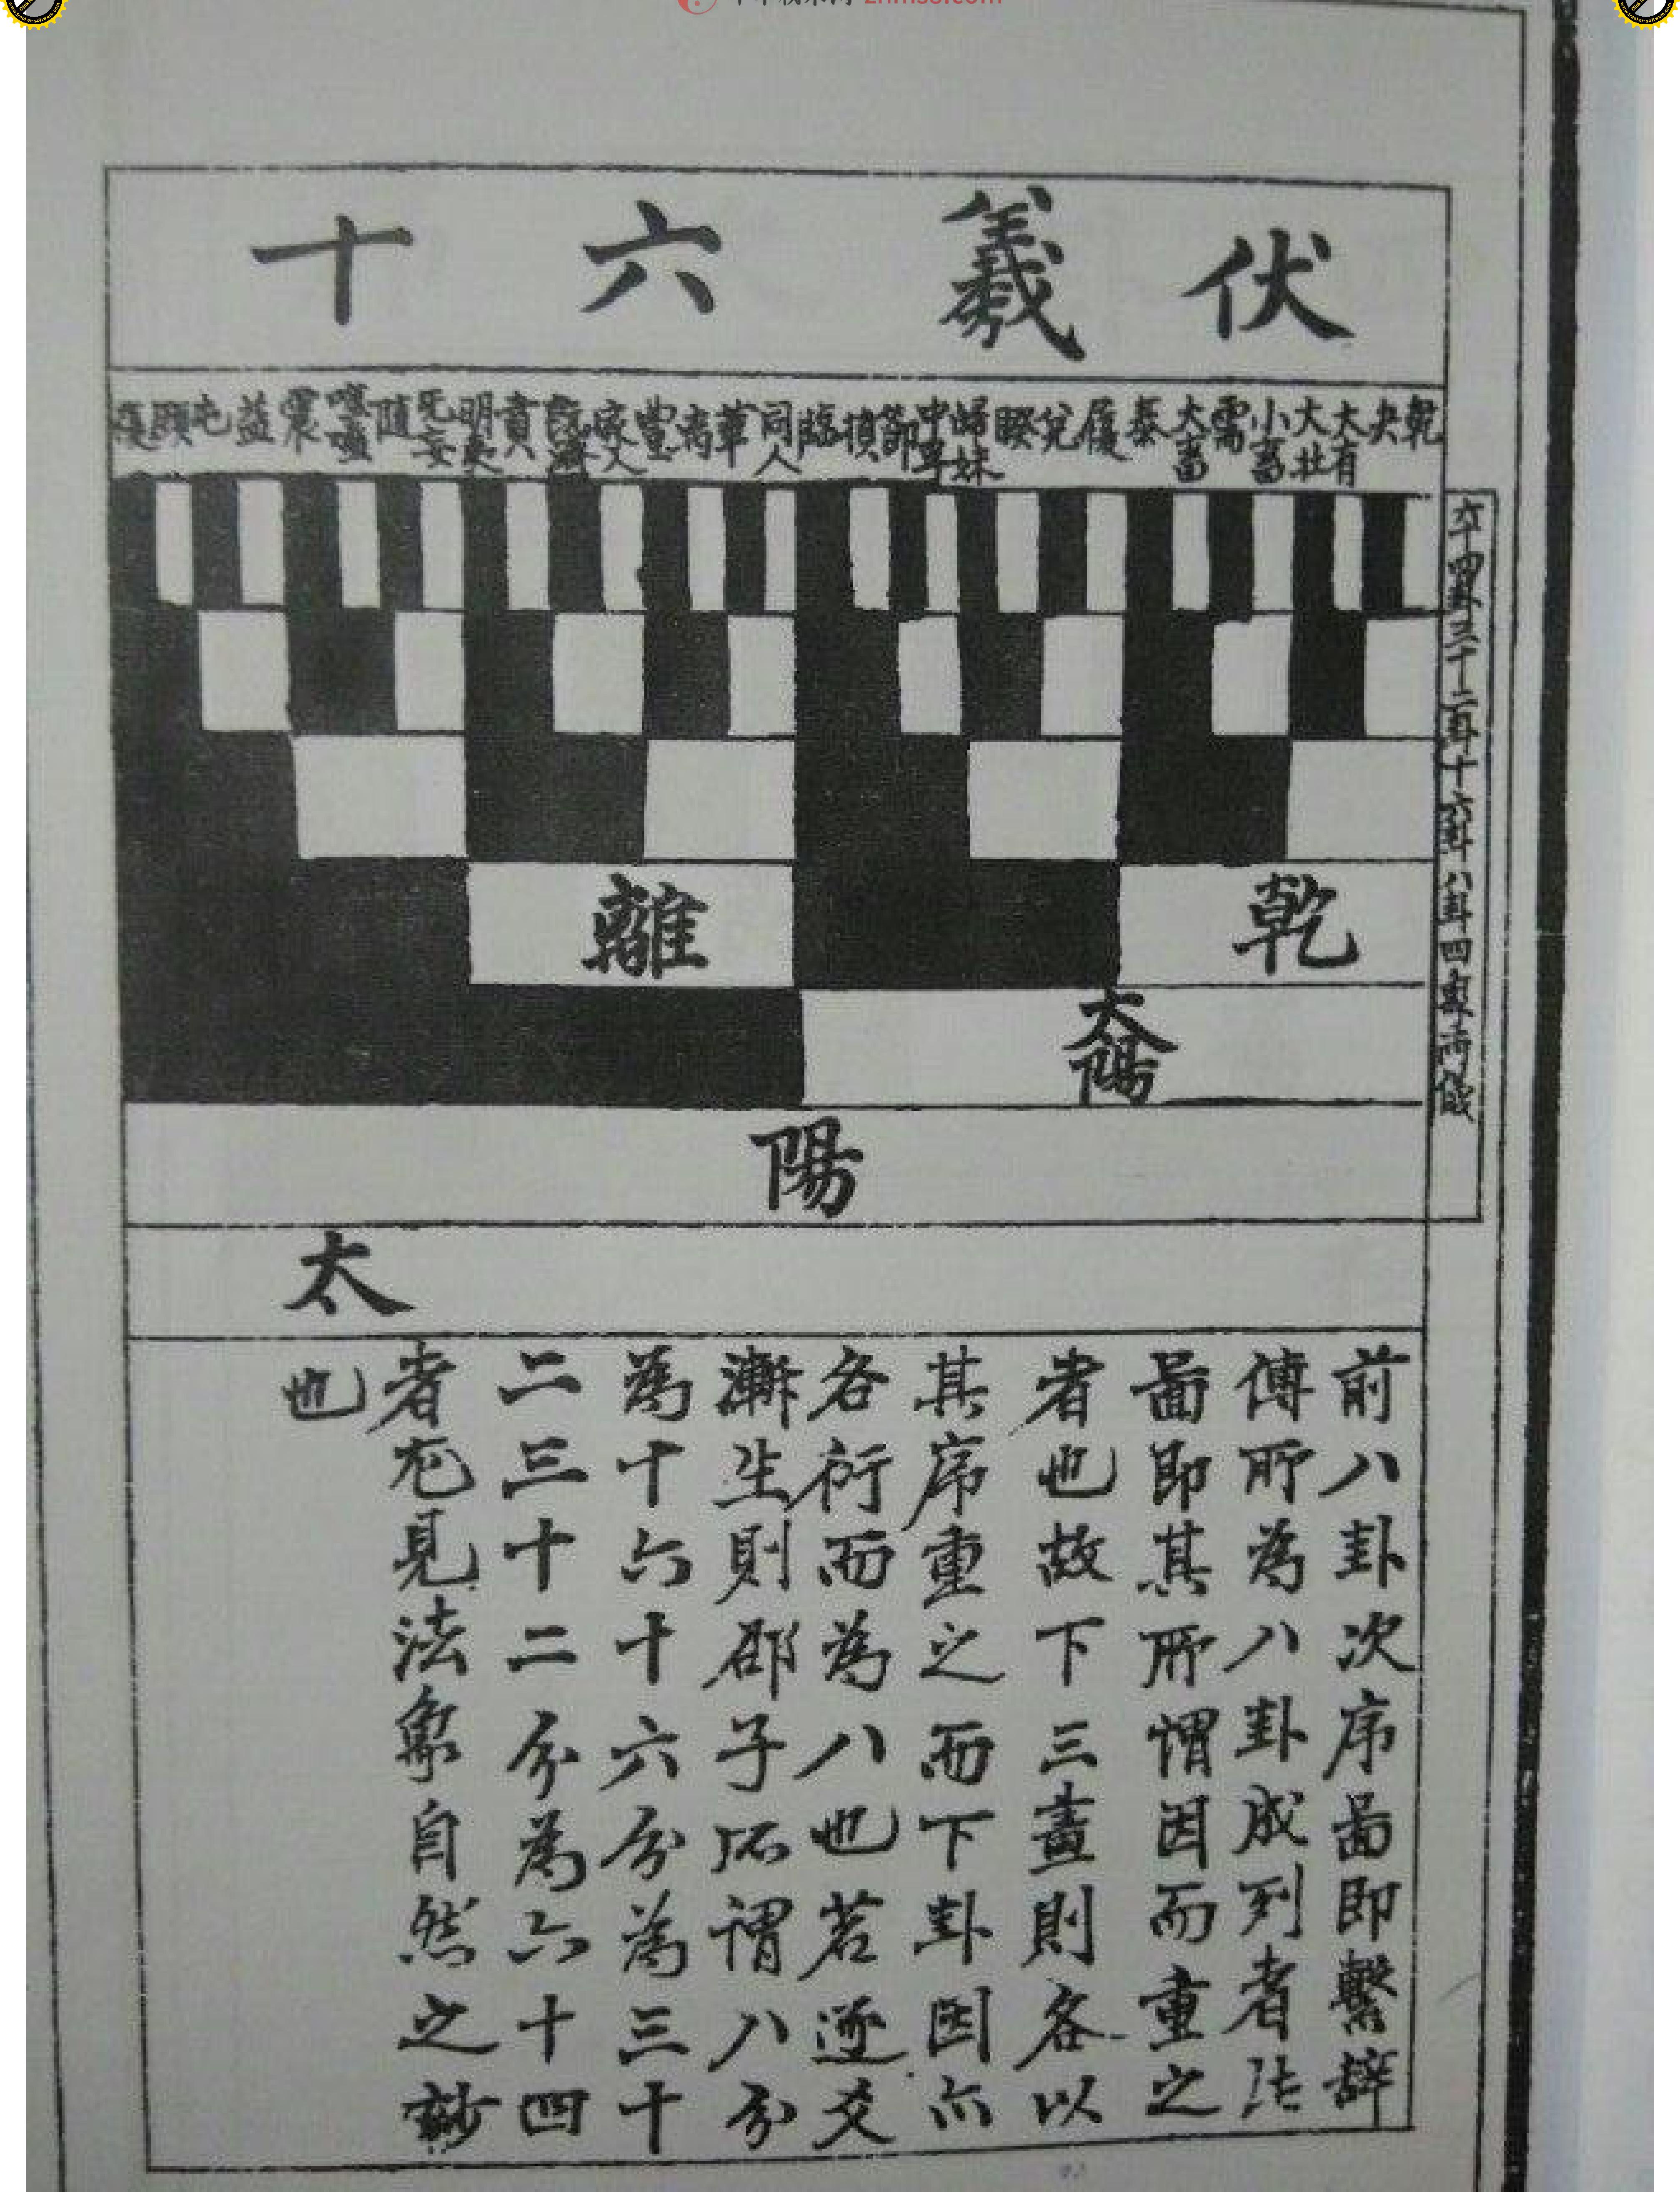 伏羲六十
乾
夬
大有
大壯
小畜
需
大畜
泰
履
兌
睽
歸妹
中孚
節
損
臨
同人
革
離
豐
家人
既濟
賁
明夷
无妄
隨
噬嗑
震
益
屯
頤
復
六十四卦三十二卦十六卦八卦四象兩儀
乾
離
太陽
陽
太
前八卦次序啚即繫辭
傳所為八卦成列者法
啚即其所謂因而重之
者也故下三畫則各以
其序重之而下卦因亦
各衍而為八也若逐爻
漸生則邵子所謂八分
為十六十六分為三十
二三十二分為六十四
者尤見法象自然之妙
也